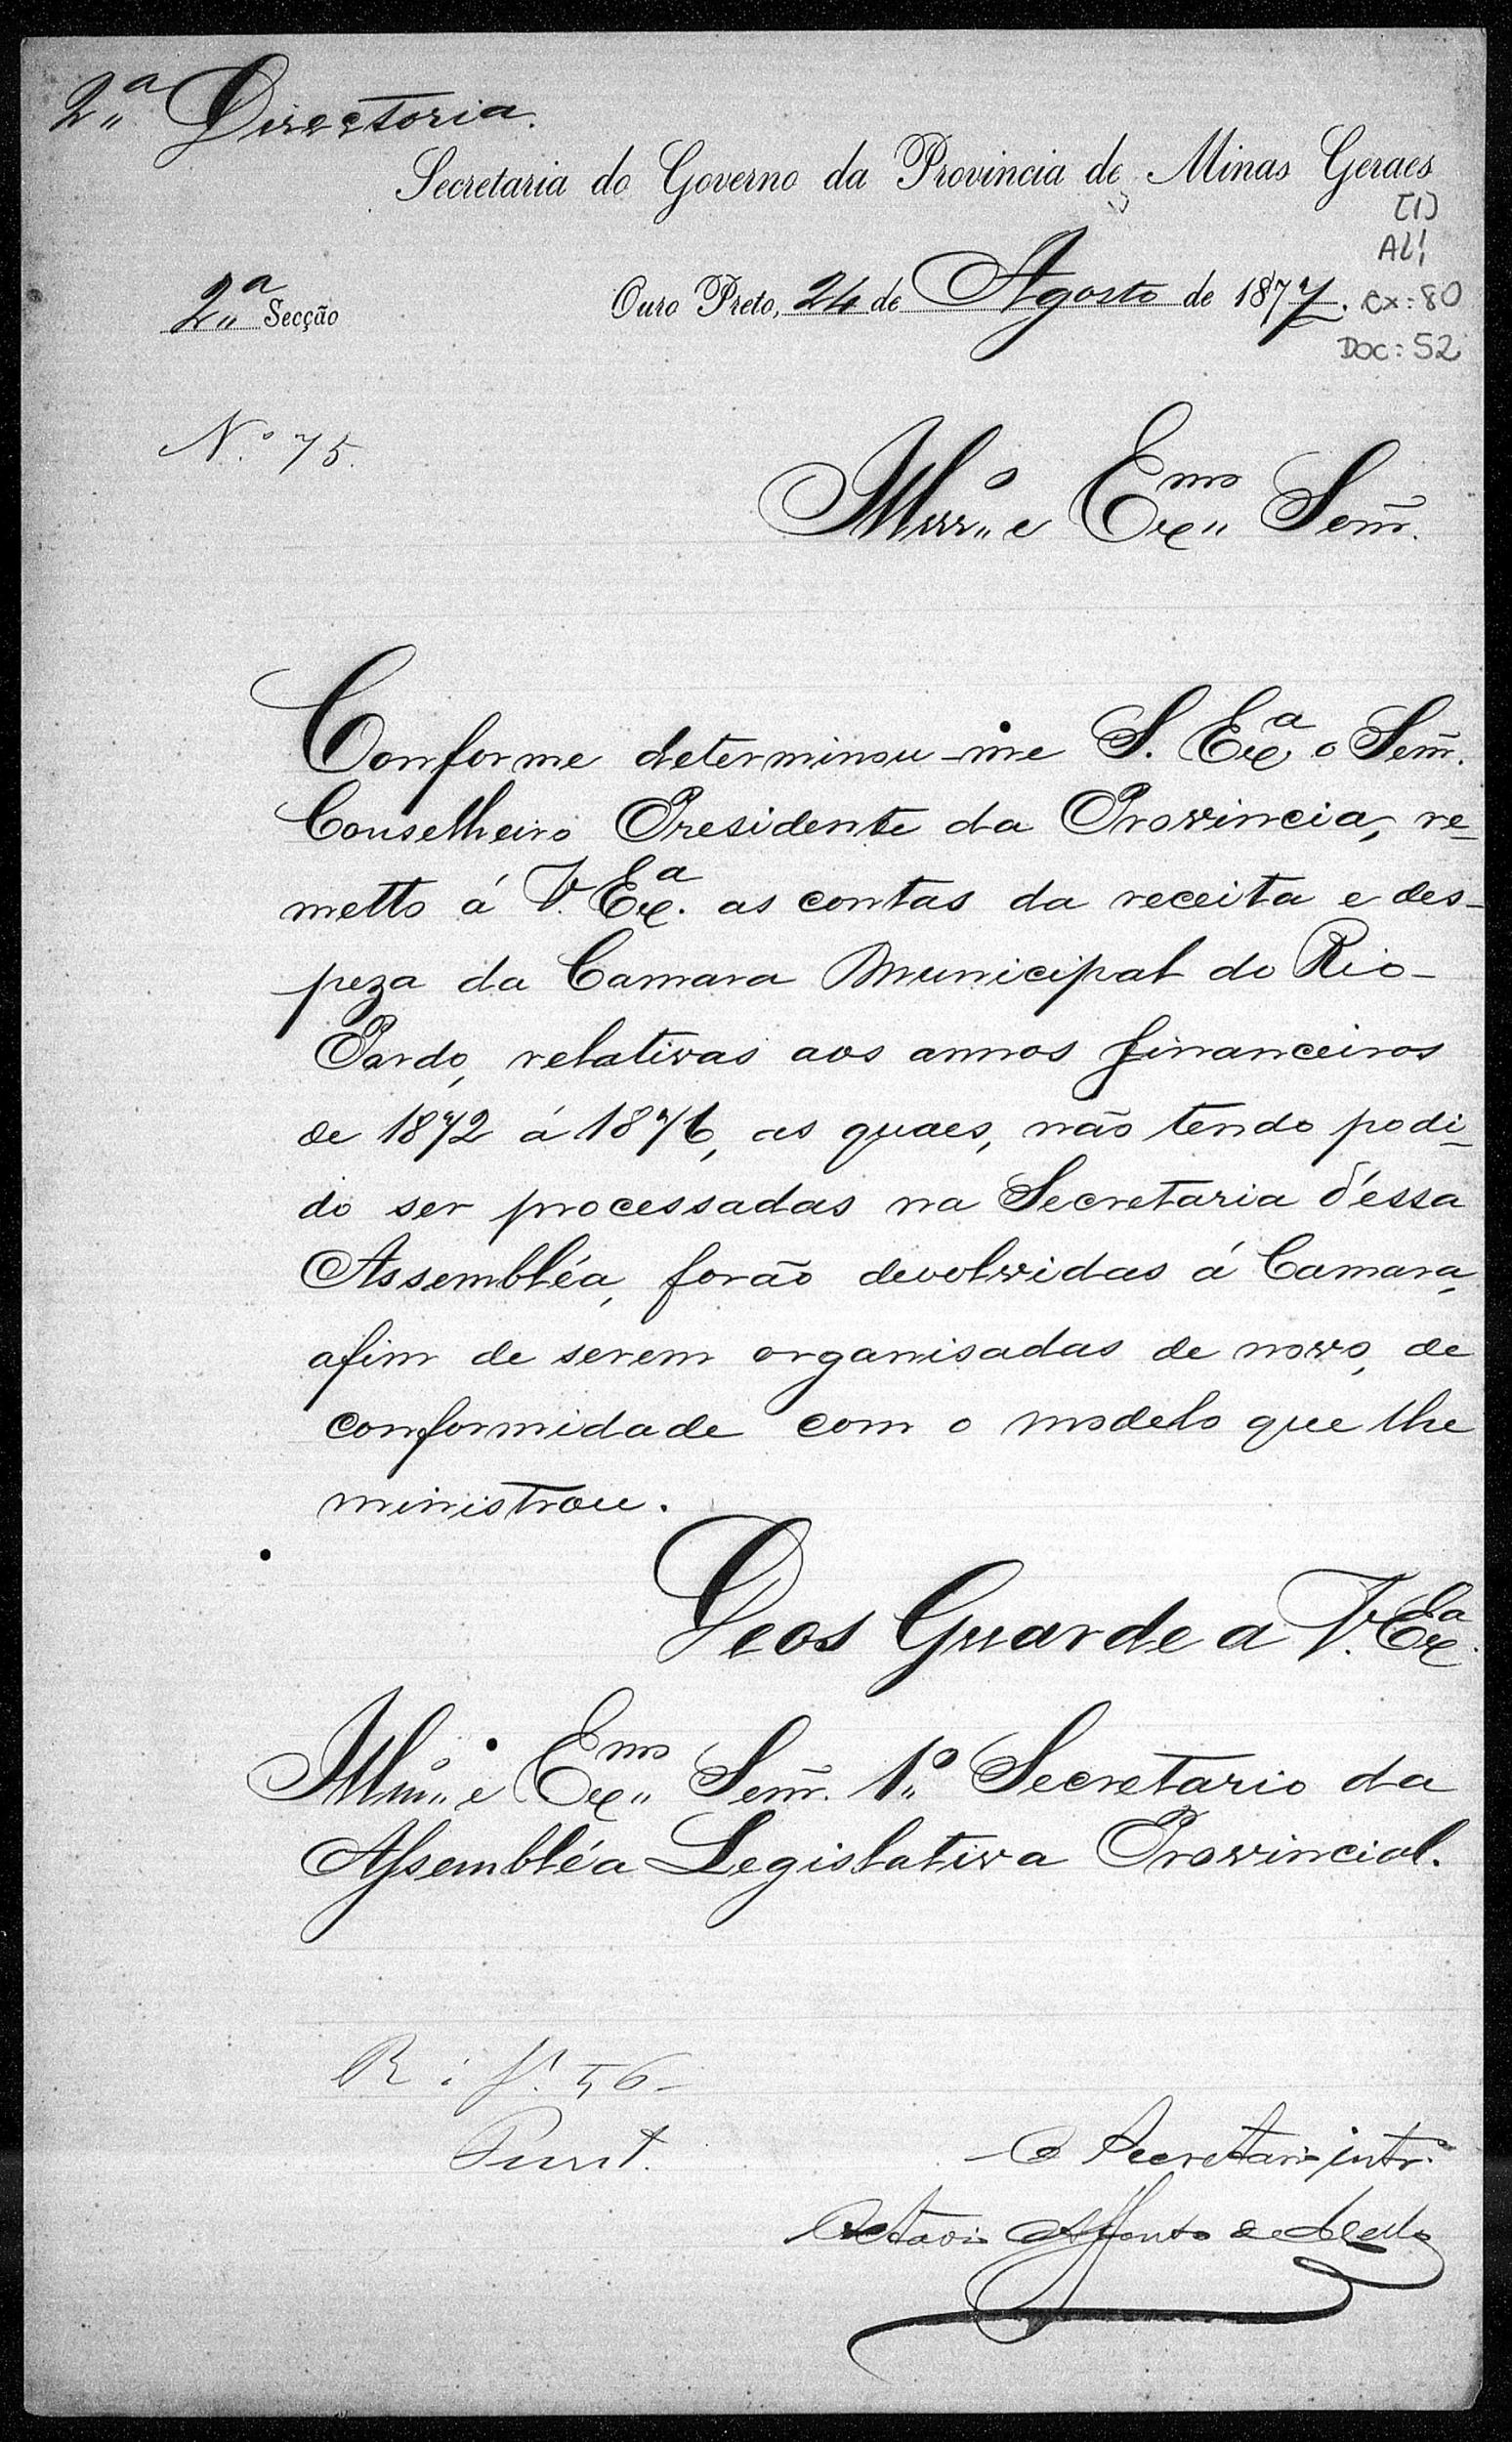 2.ª Directoria.
Secretaria do Governo da Provincia de Minas Geraes
[1]
AL!
2.ª Secção
Ouro Preto, 24 de Agosto de 1877.
cx: 80
Doc: 52
N.º 75.
Illm.º e Ex.mo Senr.
Conforme determinou-me S. Ex.ª o Senr.
Conselheiro Presidente da Provincia, re-
metto á V. Ex.ª as contas da receita e des-
peza da Camara Municipal do Rio-
Pardo, relativas aos annos financeiros
de 1872 á 1876, as quaes, não tendo podi-
do ser processadas na Secretaria d'essa
Assembléa, forão devolvidas á Camara,
afim de serem organisadas de novo, de
conformidade com o modelo que lhe
ministrou.
Deos Guarde a V. Ex.ª
Illm.º e Ex.mo Senr. 1.º Secretario da
Assembléa Legislativa Provincial.
R: f. 56
O Secretario intr.º
Octavio Affonso de Mello